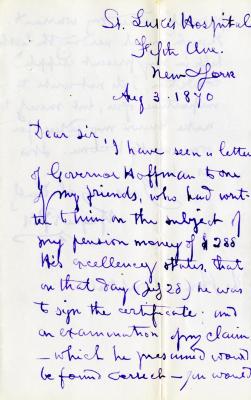 St. Luke's Hospital
Fifth Ave.
New York
Aug 3. 1870
Dear Sir I have seen a letter
of Governor Hoffman to one
of my friends, who had writ-
ten to him on the subject of
my pension money of $288
His excellency states, that
on that day (July 28) he was
to sign the certificate - and
on examination of my claim
- which he presumed would
be found correct - you would